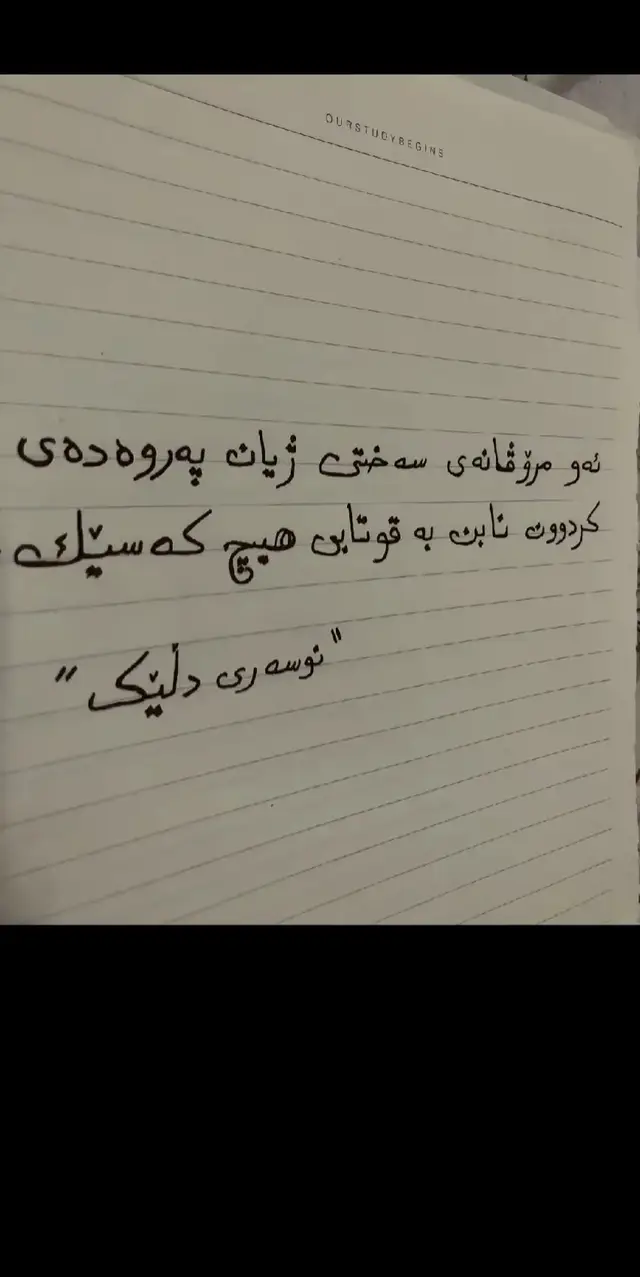 OURSTUDYBEGINS
ئەو مرۆڤانەی سەختی ژیان پەروەدەی
کردوون نابن بە قوتابی هیچ کەسێك
"نوسەری دڵێک"